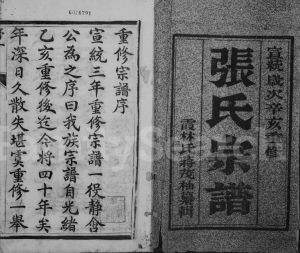 宣統歲次辛亥重修
張氏宗譜
重修宗譜序
宣統三年重修宗譜一役靜
公為之序曰我族宗譜自光緒
乙亥重修後迄今將四十年矣
年深日久散失堪虞重修一舉